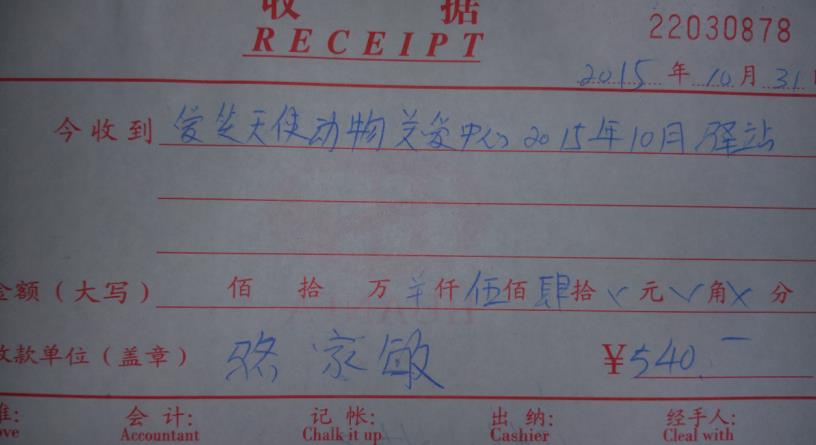 收 据
RECEIPT
22030878
2015 年 10 月 31
今收到 爱笑天使动物关爱中心 2015年10月 驿站
金额（大写） 佰 拾 万 仟伍佰肆拾 元 角 分
收款单位（盖章） 骆家敏 ¥540.-
会 计: 记 帐: 出 纳: 经手人:
Accountant Chalk it up Cashier Cleal with